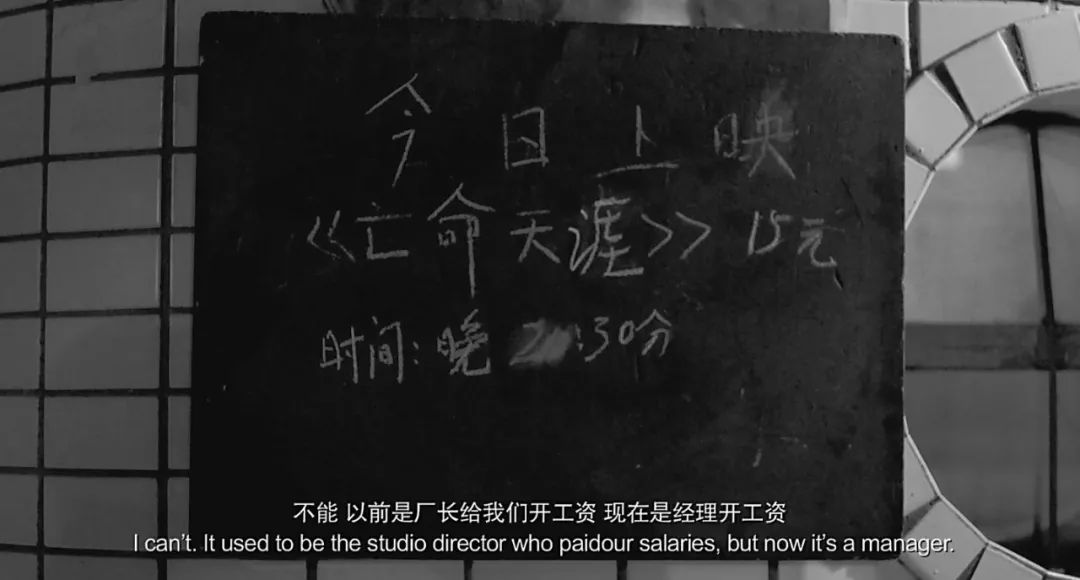 今日上映
《亡命天涯》 15元
时间:晚 :30分
不能 以前是厂长给我们开工资 现在是经理开工资
I can't. It used to be the studio director who paidour salaries, but now it's a manager.